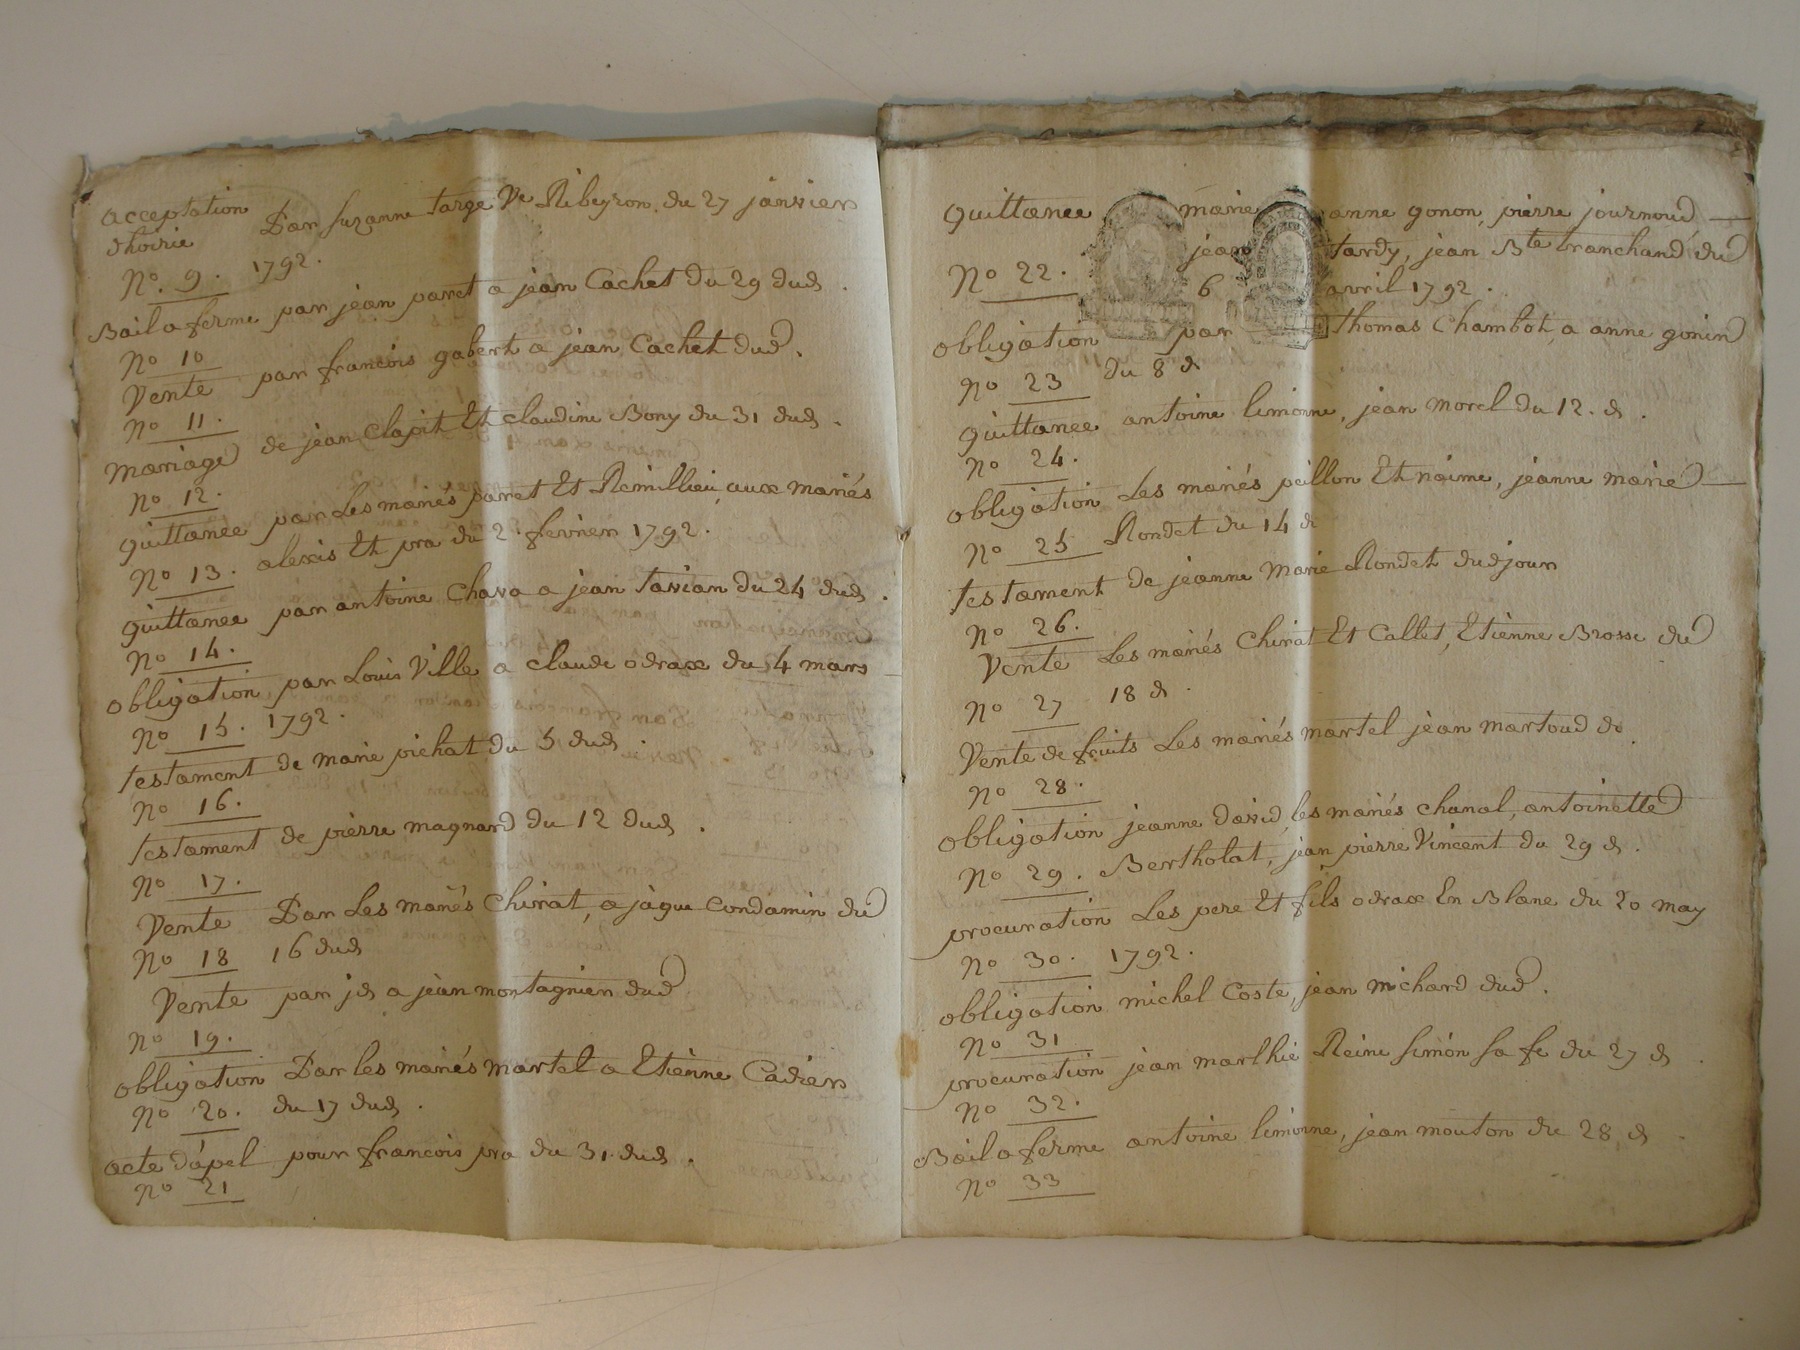 acceptation
d'hoirie Par Suzanne targe Ve Ribeyron, du 27 janvier
No. 9. 1792.
Bail a ferme par jean paret a jean Cachet du 29 dud.
No 10
Vente par francois gabert a jean Cachet dud.
No 11.
Mariage de jean Clapit Et claudine Bony du 31 dud.
No 12.
quittance par Les mariés paret Et Remillieu, aux mariés
No 13. alexis Et pra du 2 fevrier 1792.
quittance par antoine Chava a jean tavian du 24 dud.
No 14.
obligation par Louis Ville a claude odrax du 4 mars
No 15. 1792.
testament de marie pichat du 5 dud
No 16.
testament de pierre magnard du 12 dud.
No 17.
Vente Par Les mariés Chirat, a jaque Condamin du
No 18 16 dud
Vente par jd a jean montagnier dud
No 19.
obligation Par les mariés martel a Etienne Cadier
No 20. du 17 dud.
acte d'apel pour francois pra du 31 dud.
No 21
quittance marie anne gonon, pierre journoud
jean tardy, jean Bte tranchand du
No 22. 6 avril 1792.
obligation par thomas Chambot, a anne gonin
No 23 du 8 d
quittance antoine limonne, jean morel du 12. d.
No 24.
obligation Les mariés peillon Et naime, jeanne marie
No 25 Rondet du 14 d
testament de jeanne Marie Rondet dud jour
No 26.
Vente Les mariés Chirat Et Callet, Etienne Brosse du
No 27 18 d.
Vente de fruits Les mariés martel jean martoud do.
No 28.
obligation jeanne david, les mariés chanal, antoinette
No 29. Bertholat, jean pierre Vincent du 29 d.
procuration Les pere Et fils odrax En Blanc du 20 may
No 30. 1792.
obligation michel Coste, jean michard dud.
No 31
procuration jean marlhie Reine Simon sa fe du 27 d
No 32.
Bail a ferme antoine limonne, jean mouton du 28 d
No 33